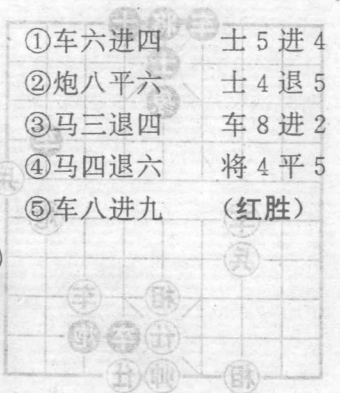 ①车六进四 士5进4
②炮八平六 士4退5
③马三退四 车8进2
④马四退六 将4平5
⑤车八进九 （红胜）